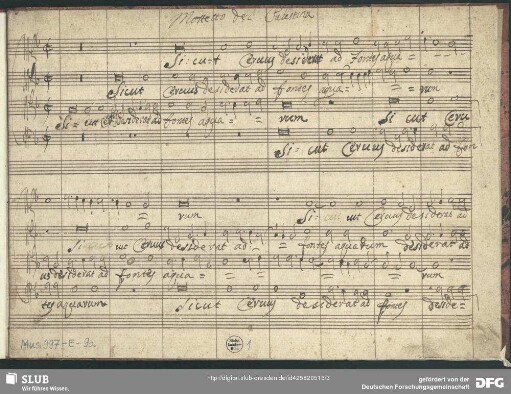 Motetto del Palestrina
Si: cu:t Cervus desiderat ad Fontes aqua =
Sicut Cervus desiderat ad fontes aqua = = rum
Si: cut Cer desiderat ad fontes aqua = = rum Si cut Ceru
Si: cut Cervus desiderat ad fon
= rum Si: cut Cervus desiderat ad
Si ut Cervus desiderat ad = = fontes aquarum desiderat ad
us desiderat ad fontes aqua = = = = rum
tes aquarum Sicut Cervus desiderat ad fontes deside =
Mus. 997-E-9a
1
SLUB
Wir führen Wissen.
gefördert von der
Deutschen Forschungsgemeinschaft
DFG